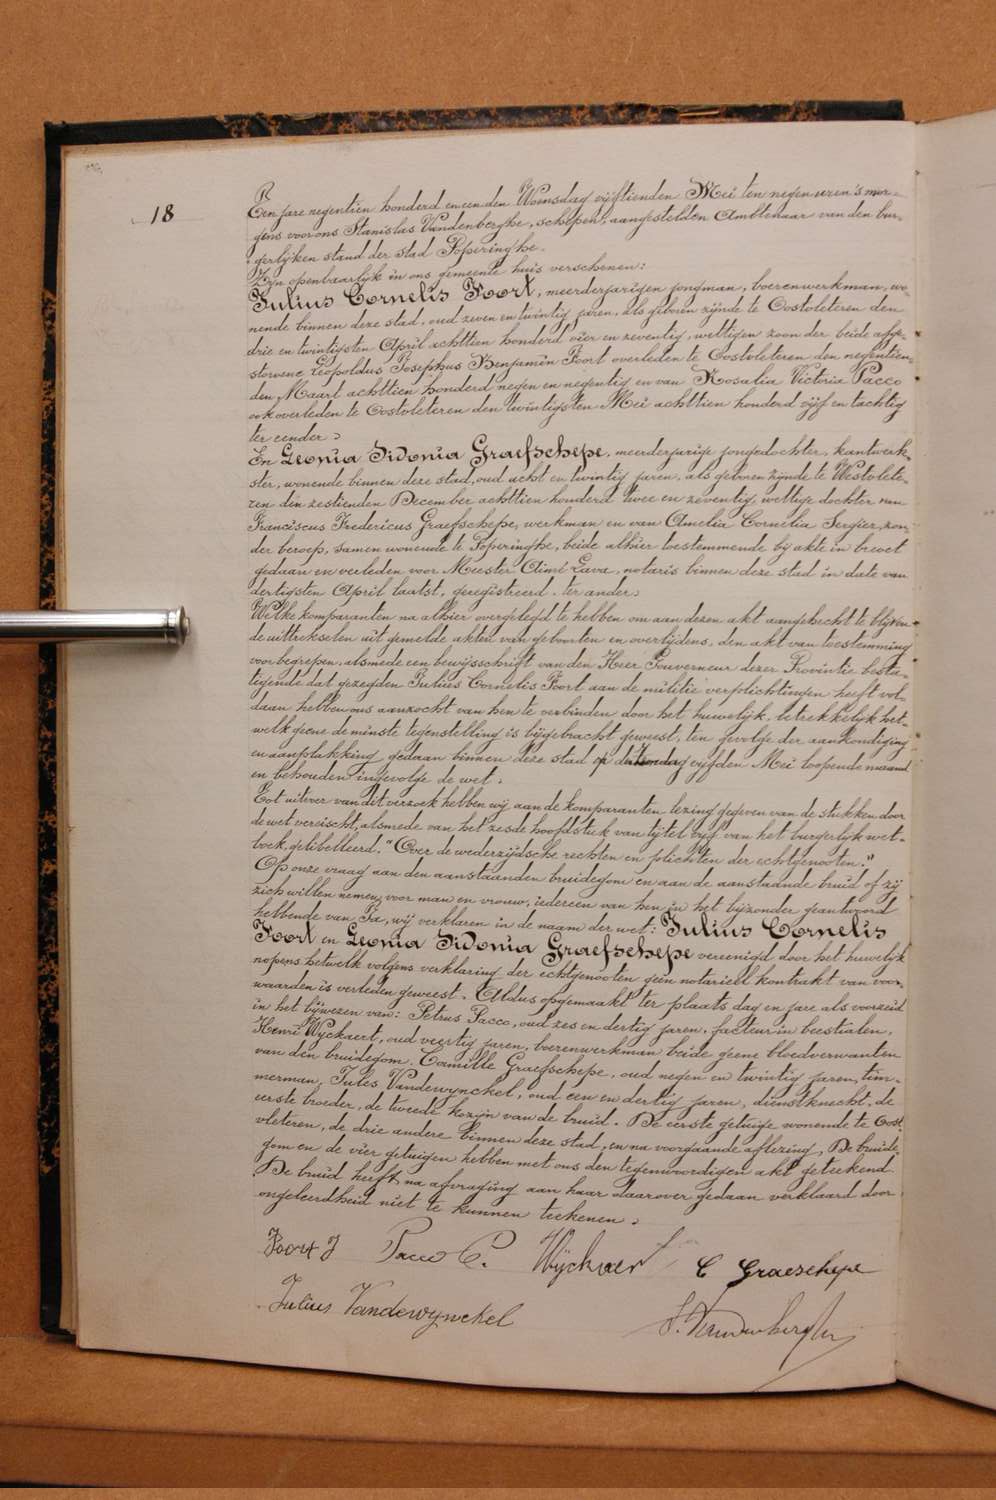 18
Een jare negentien honderd en een den Woensdag vijftienden Mei ten negen uren 's mor-
gens voor ons Stanislas Vandenberghe, schepen, aangestelden Ambtenaar van den bur-
gerlijken stand der stad Poperinghe.
Zijn openbaarlijk in ons gemeente huis verschenen:
Julius Cornelis Foort, meerderjarigen jongman, boerenwerkman, wo-
nende binnen deze stad, oud zeven en twintig jaren, als geboren zijnde te Oostvleteren den
drie en twintigsten April achttien honderd vier en zeventig, wettigen zoon der beide afge-
storvene Leopoldus Josephus Benjamin Foort overleden te Oostvleteren den negentien-
den Maart achttien honderd negen en negentig en van Rosalia Victoria Pacco
ook overleden te Oostvleteren den twintigsten Mei achttien honderd vijf en tachtig
ter eender.
En Leonia Sidonia Graefschepe, meerderjarige jongedochter, kantwerk-
ster, wonende binnen deze stad, oud acht en twintig jaren, als geboren zijnde te Westvlete-
ren den zestienden December achttien honderd twee en zeventig, wettige dochter van
Franciscus Fredericus Graefschepe, werkman en van Amelia Cornelia Sergier, zon-
der beroep, samen wonende te Poperinghe, beide alhier toestemmende bij akte in brevet
gedaan en verleden voor Meester Aimé Lava, notaris binnen deze stad in date van
dertigsten April laatst, geregistreerd. ter ander.
Welke komparanten na alhier overgelegd te hebben om aan dezen akt aangehecht te blijven
de uittrekselen uit gemelde akten van geboorten en overlijdens, den akt van toestemming
voorbegrepen, alsmede een bewijsschrift van den Heer Gouverneur dezer Provintie besta-
tigende dat gezegden Julius Cornelis Foort aan de militie verplichtingen heeft vol-
daan hebben ons aanzocht van hen te verbinden door het huwelijk, betrekkelijk het-
welk geene de minste tegenstelling is bijgebracht geweest, ten gevolge der aankondiging
en aanplakking gedaan binnen deze stad op den Zondag vijfden Mei loopende maand
en behouden ingevolge de wet.
Tot uitiver van dit verzoek hebben wij aan de komparanten lezing gegeven van de stukken door
de wet vereischt, alsmede van het zesde hoofdstuk van tijtel vijf van het burgerlijk wet-
boek, gelibelleerd. "Over de wederzijdsche rechten en plichten der echtgenooten."
Op onze vraag aan den aanstaanden bruidegom en aan de aanstaande bruid of zij
zich willen nemen voor man en vrouw, iedereen van hen in het bijzonder geantwoord
hebbende van Ja, wij verklaren in de naam der wet: Julius Cornelis
Foort en Leonia Sidonia Graefschepe vereenigd door het huwelijk
nopens hetwelk volgens verklaring der echtgenooten geen notarieel kontrakt van voor-
waarden is verleden geweest. Aldus opgemaakt ter plaats dag en jare als voorzeid
in het bijwezen van: Petrus Pacco, oud zes en dertig jaren, facteur in beestialen,
Henri Wyckaert, oud veertig jaren, boerenwerkman beide geene bloedverwanten
van den bruidegom, Camille Graefschepe, oud negen en twintig jaren, tim-
merman, Jules Vandewynckel, oud een en dertig jaren, dienstknecht, de
eerste broeder, de tweede kozijn van de bruid. De eerste getuige wonende te Oost-
vleteren, de drie andere binnen deze stad, en na voorgaande aflezing, De bruide-
gom en de vier getuigen hebben met ons den tegenwoordigen akt geteekend
De bruid heeft na afvraging aan haar daarover gedaan verklaard door
ongeleerdheid niet te kunnen teekenen.
Foort J Pacco P. Wyckaert C Graeschepe
Julius Vandewynckel S. Vandenberghe